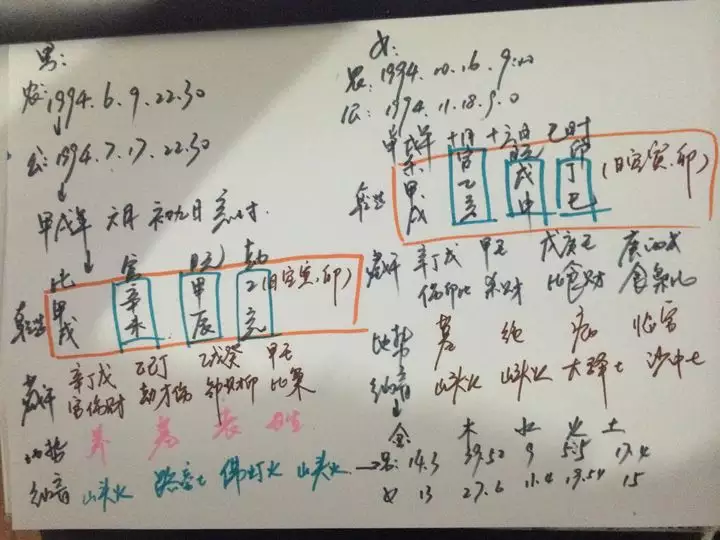 男:
农:1994.6.9.22.30
公:1994.7.17.22.30
甲戌年 六月 初九日 亥时
比 官 日元 劫
乾造 甲戌 辛未 甲辰 乙亥 (日空寅、卯)
藏干 辛丁戊 乙己丁 乙戊癸 甲壬
官伤财 劫才伤 劫财印 比枭
地势 养 墓 衰 长生
纳音 山头火 路旁土 佛灯火 山头火
女:
农:1994.10.16.9:00
公:1994.11.18.9.0
甲戌年 十月 十六日 巳时
杀 官 日元 印
乾造 甲戌 乙亥 戊申 丁巳 (日空寅、卯)
藏干 辛丁戊 甲壬 戊庚壬 庚丙戊
伤印比 杀财 比食财 食枭比
地势 墓 绝 病 临官
纳音 山头火 山头火 大驿土 沙中土
金 木 水 火 土
男: 14.3 39.52 9 5.5 17.4
女 13 27.6 11.4 19.54 15